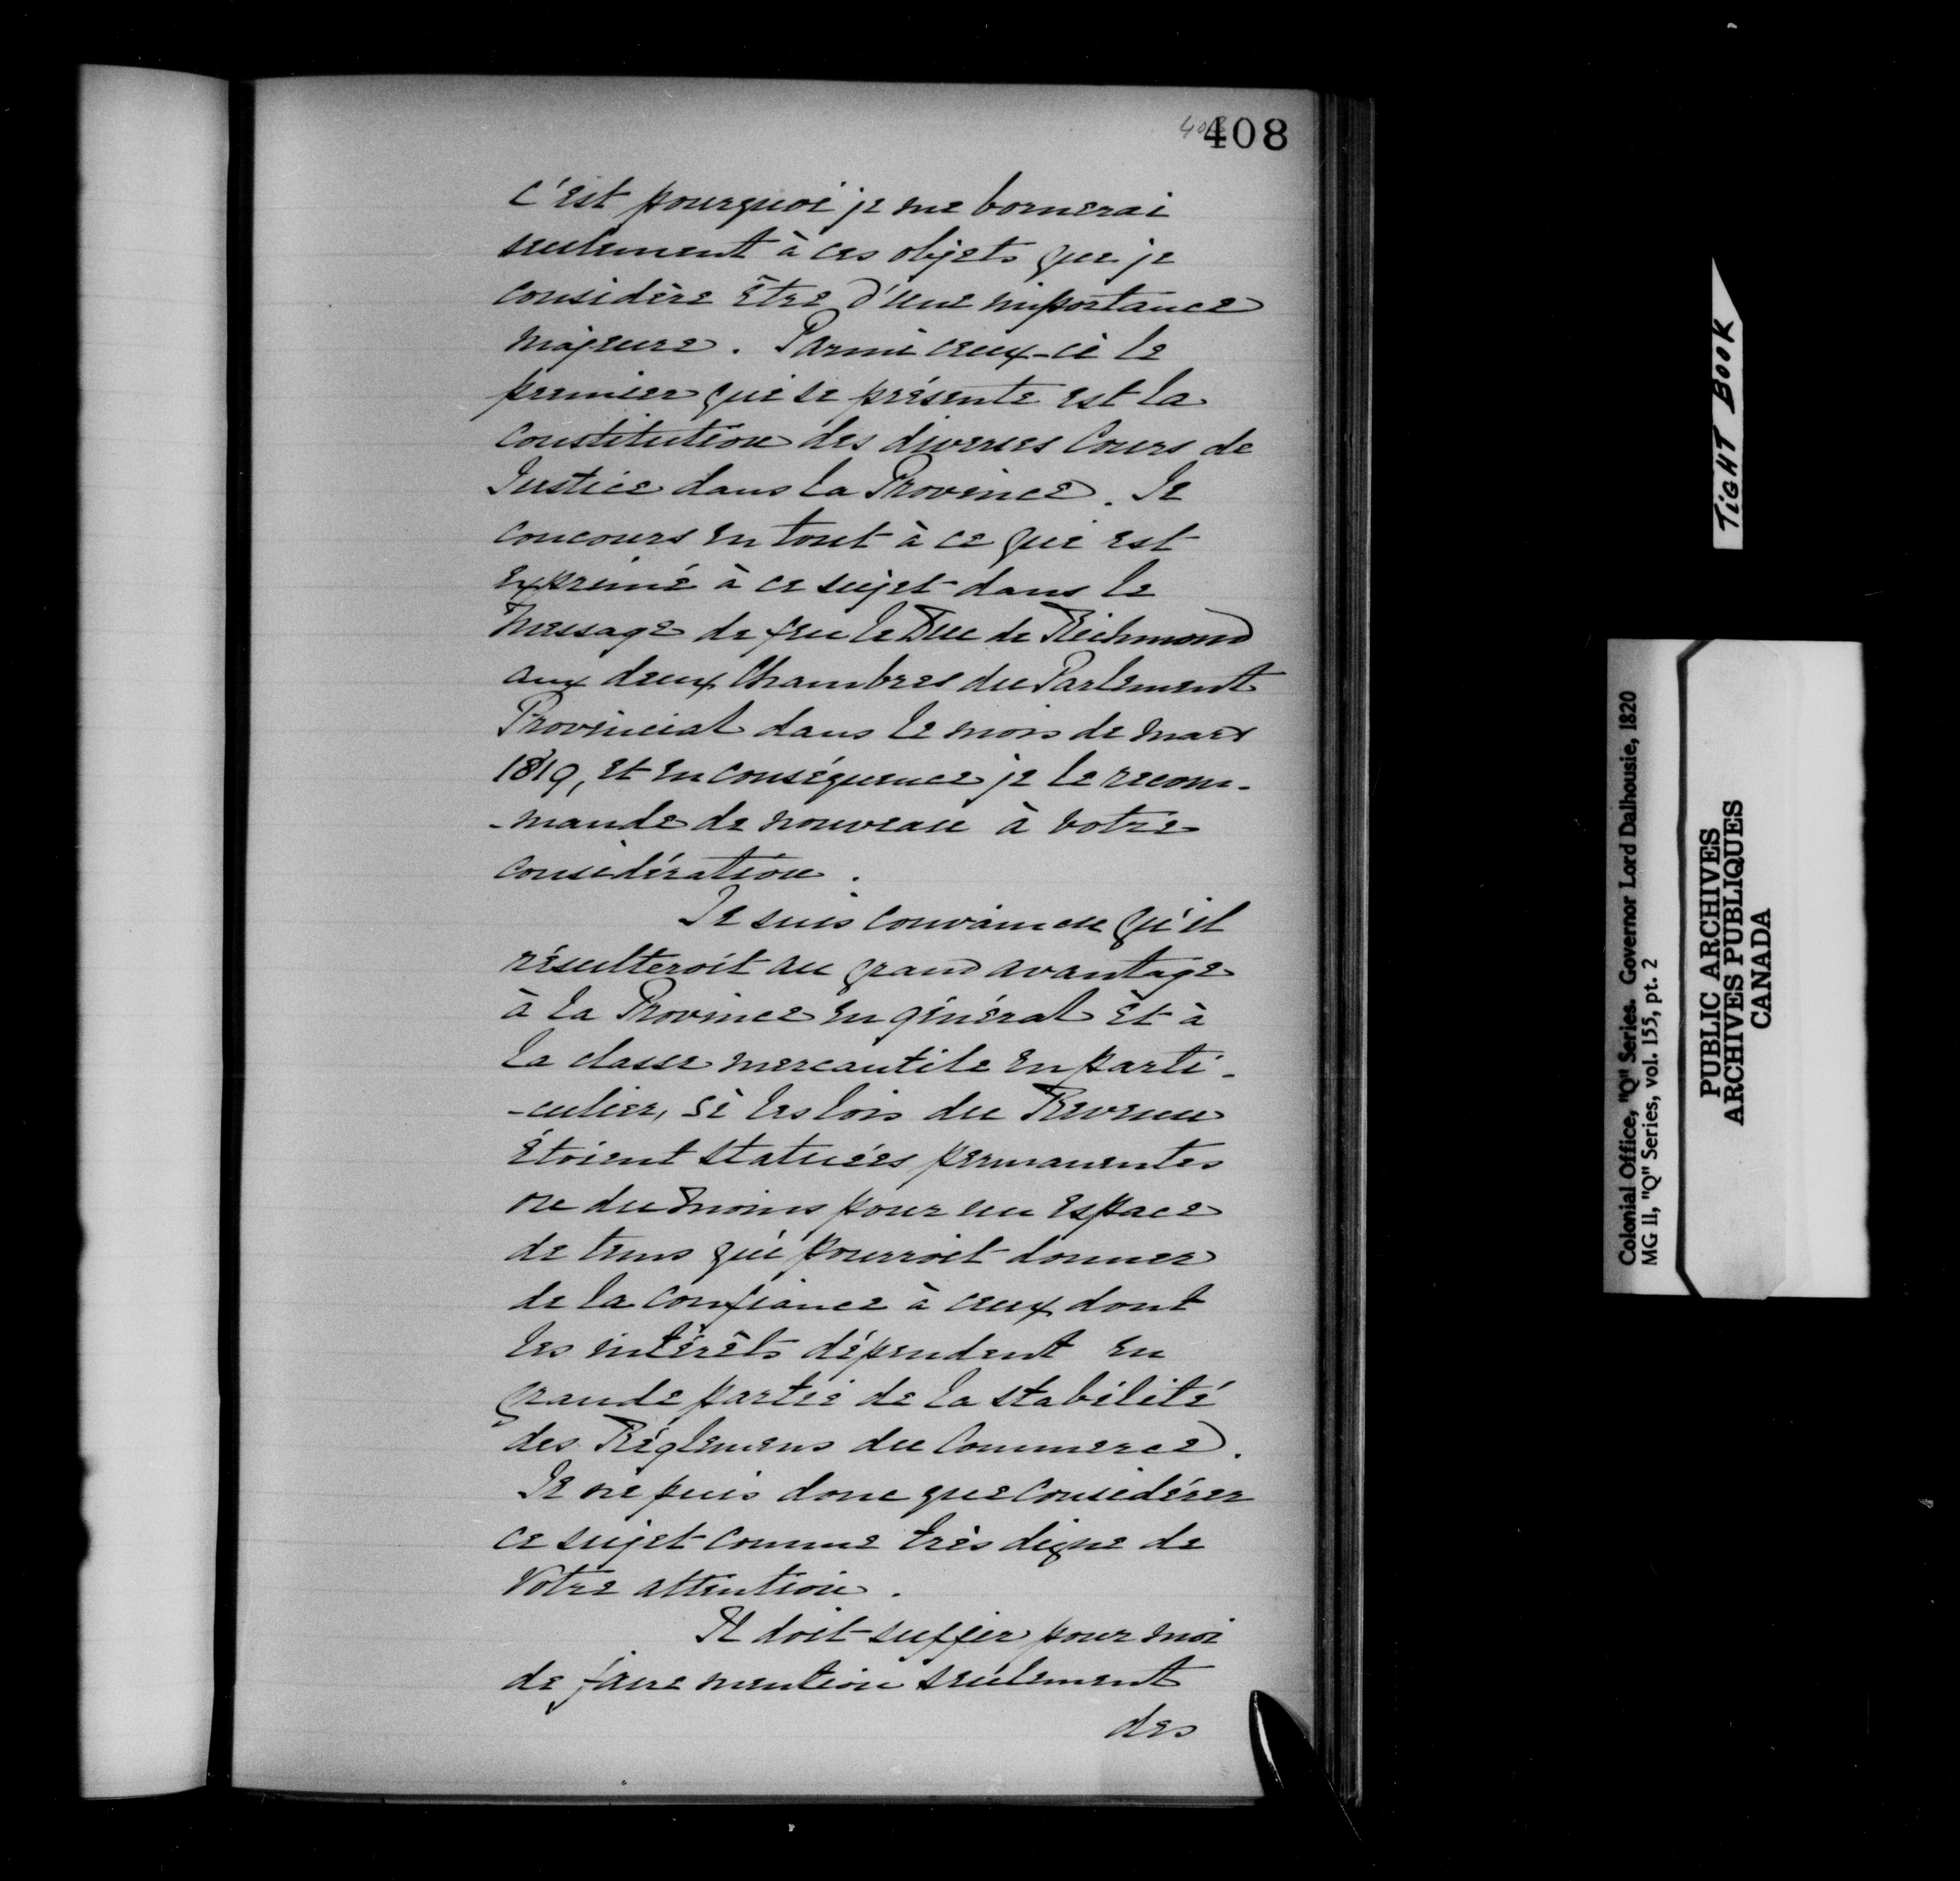 408
408
c'est pourquoi je me bornerai
seulement à ces objets que je
considère être d'une importance
majeure. Parmi ceux-ci le
premier qui se présente est la
constitution des diverses Cours de
Justice dans la Province. Je
concours en tout à ce qui est
exprimé à ce sujet dans le
Message de feu le Duc de Richmond
aux deux Chambres du Parlement
Provincial dans le mois de mars
1819, et en conséquence je le recom-
-mande de nouveau à votre
considération.
Je suis convaincu qu'il
résulteroit au grand avantage
à la Province en général et à
la classe mercantile en parti-
-culier, si les lois du Revenu
étoient statuées permanentes
ou du moins pour un espace
de tems qui pourroit donner
de la confiance à ceux dont
les intérêts dépendent en
grande partie de la stabilité
des Réglemens du Commerce.
Je ne puis donc que considérer
ce sujet comme très digne de
Votre attention.
Il doit suffir pour moi
de faire mention seulement
des
TIGHT BOOK
Colonial Office, "Q" Series. Governor Lord Dalhousie, 1820
MG 11, "Q" Series, vol. 155, pt. 2
PUBLIC ARCHIVES
ARCHIVES PUBLIQUES
CANADA